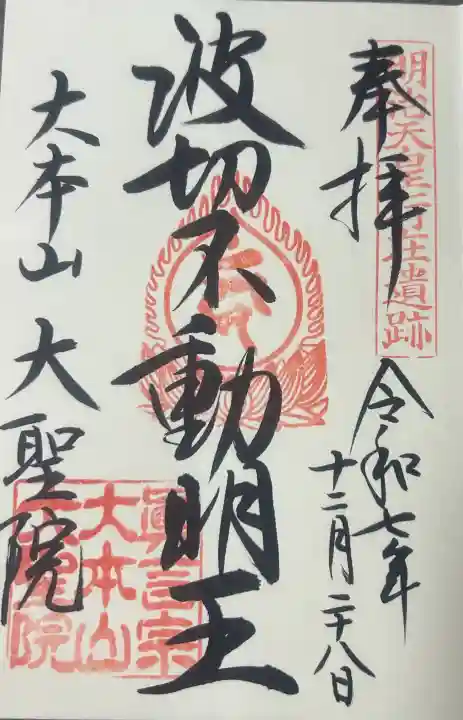 明治天皇行在遺跡
奉拝
令和七年
十二月二十八日
波切不動明王
大本山大聖院
眞言宗
大本山
大聖院